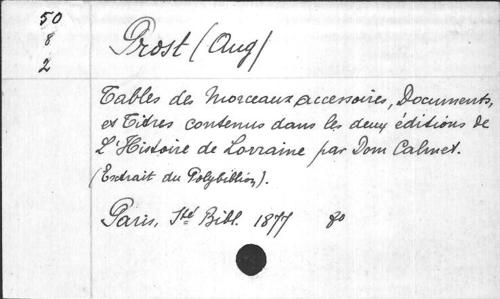 50
8
2
Prost (Aug)
Tables des Morceaux accessoires, Documents,
et Titres contenus dans les deux éditions de
L'Histoire de Lorraine par Dom Calmet.
(Extrait du Polybiblion).
Paris, Sté Bibl. 1877 8o